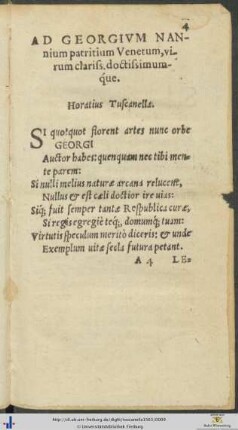 4
AD GEORGIVM NAN-
nium patritium Venetum, vi-
rum clariss, doctissimum-
que.
Horatius Tuscanella.
SI quotquot florent artes nunc orbe
GEORGI
Auctor habes: quenquam nec tibi men-
te parem:
Si nulli melius naturæ arcana relucent,
Nullus & est cæli doctior ire uias:
Siq; fuit semper tantæ Respublica curæ,
Si regis egregiè teq;, domumq; tuam:
Virtutis speculum meritò diceris: & unde
Exemplum uitæ secla futura petant.
A 4 LE=